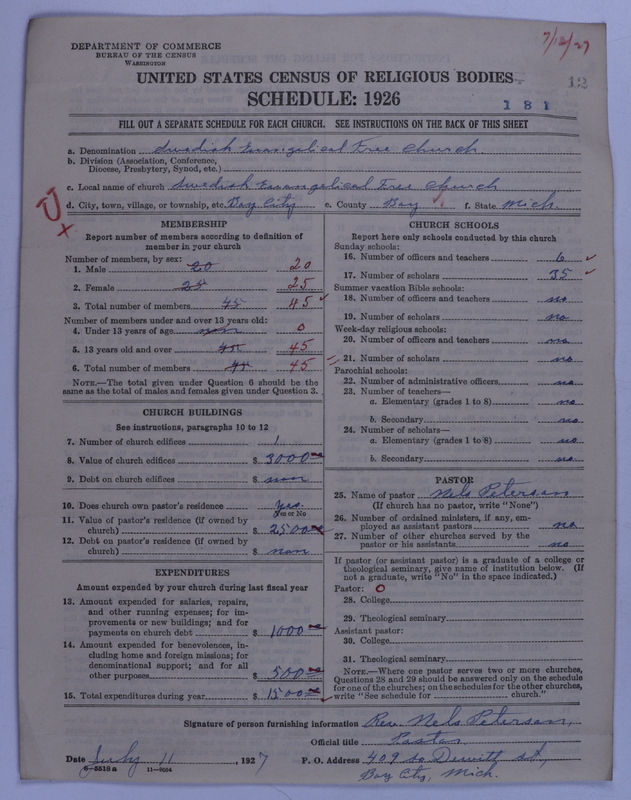 7/12/27
DEPARTMENT OF COMMERCE
BUREAU OF THE CENSUS
WASHINGTON
12
UNITED STATES CENSUS OF RELIGIOUS BODIES
SCHEDULE: 1926
181
FILL OUT A SEPARATE SCHEDULE FOR EACH CHURCH. SEE INSTRUCTIONS ON THE BACK OF THIS SHEET
a. Denomination Swedish Evangelical Free Church.
b. Division (Association, Conference,
Diocese, Presbytery, Synod, etc.)
c. Local name of church Swedish Evangelical Free Church
d. City, town, village, or township, etc. Bay City e. County Bay f. State Mich.
MEMBERSHIP
Report number of members according to definition of
member in your church
Number of members, by sex:
1. Male 20 20
2. Female 25 25
3. Total number of members 45 45
Number of members under and over 13 years old:
4. Under 13 years of age non 0
5. 13 years old and over 45 45
6. Total number of members 45 45
NOTE.—The total given under Question 6 should be the
same as the total of males and females given under Question 3.
CHURCH BUILDINGS
See instructions, paragraphs 10 to 12
7. Number of church edifices 1
8. Value of church edifices $ 3000
9. Debt on church edifices $ non
10. Does church own pastor's residence yes.
Yes or No
11. Value of pastor's residence (if owned by
church) $ 2500
12. Debt on pastor's residence (if owned by
church) $ non
EXPENDITURES
Amount expended by your church during last fiscal year
13. Amount expended for salaries, repairs,
and other running expenses; for im-
provements or new buildings; and for
payments on church debt $ 1000
14. Amount expended for benevolences, in-
cluding home and foreign missions; for
denominational support; and for all
other purposes $ 500
15. Total expenditures during year $ 1500
CHURCH SCHOOLS
Report here only schools conducted by this church
Sunday schools:
16. Number of officers and teachers 6
17. Number of scholars 35
Summer vacation Bible schools:
18. Number of officers and teachers no
19. Number of scholars no
Week-day religious schools:
20. Number of officers and teachers no
21. Number of scholars no
Parochial schools:
22. Number of administrative officers no
23. Number of teachers—
a. Elementary (grades 1 to 8) no
b. Secondary no
24. Number of scholars—
a. Elementary (grades 1 to 8) no
b. Secondary no
PASTOR
25. Name of pastor Nels Peterson
(If church has no pastor, write "None")
26. Number of ordained ministers, if any, em-
ployed as assistant pastors no
27. Number of other churches served by the
pastor or his assistants no
If pastor (or assistant pastor) is a graduate of a college or
theological seminary, give name of institution below. (If
not a graduate, write "No" in the space indicated.)
Pastor: O
28. College
29. Theological seminary
Assistant pastor:
30. College
31. Theological seminary
NOTE.—Where one pastor serves two or more churches,
Questions 28 and 29 should be answered only on the schedule
for one of the churches; on the schedules for the other churches,
write "See schedule for church."
Signature of person furnishing information Rev. Nels Peterson,
Official title Pastor
Date July 11, 1927 P. O. Address 409 So Dewitt st,
6—5518a 11—9054 Bay City, Mich.